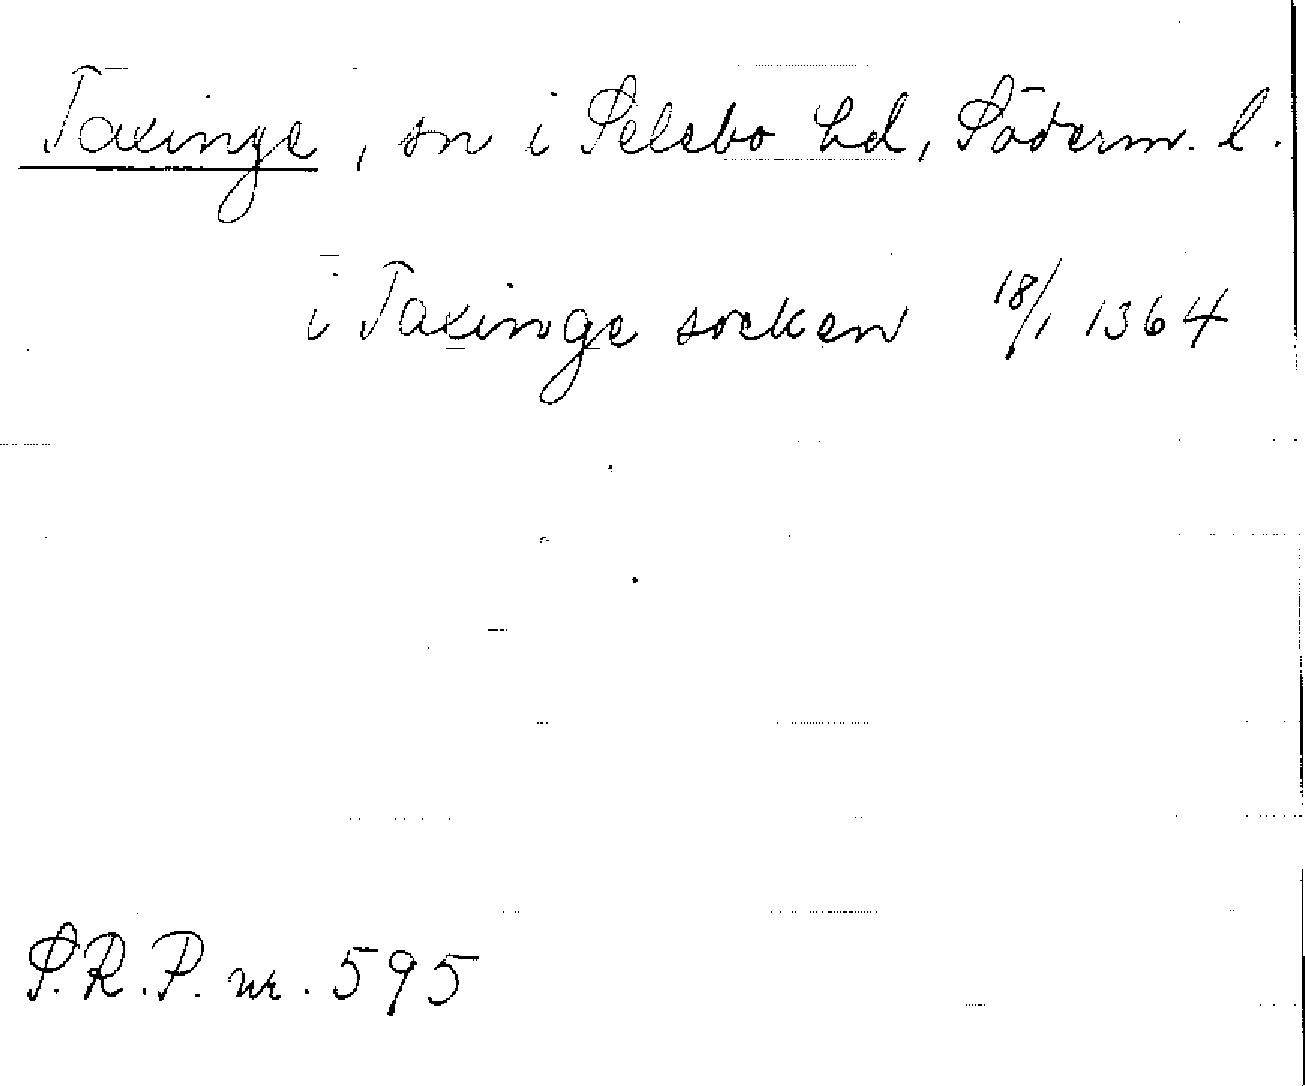 Taxinge, sn i Selebo hd, Söderm. l.
i Taxinge socken 18/1 1364
S.R.P. nr. 595